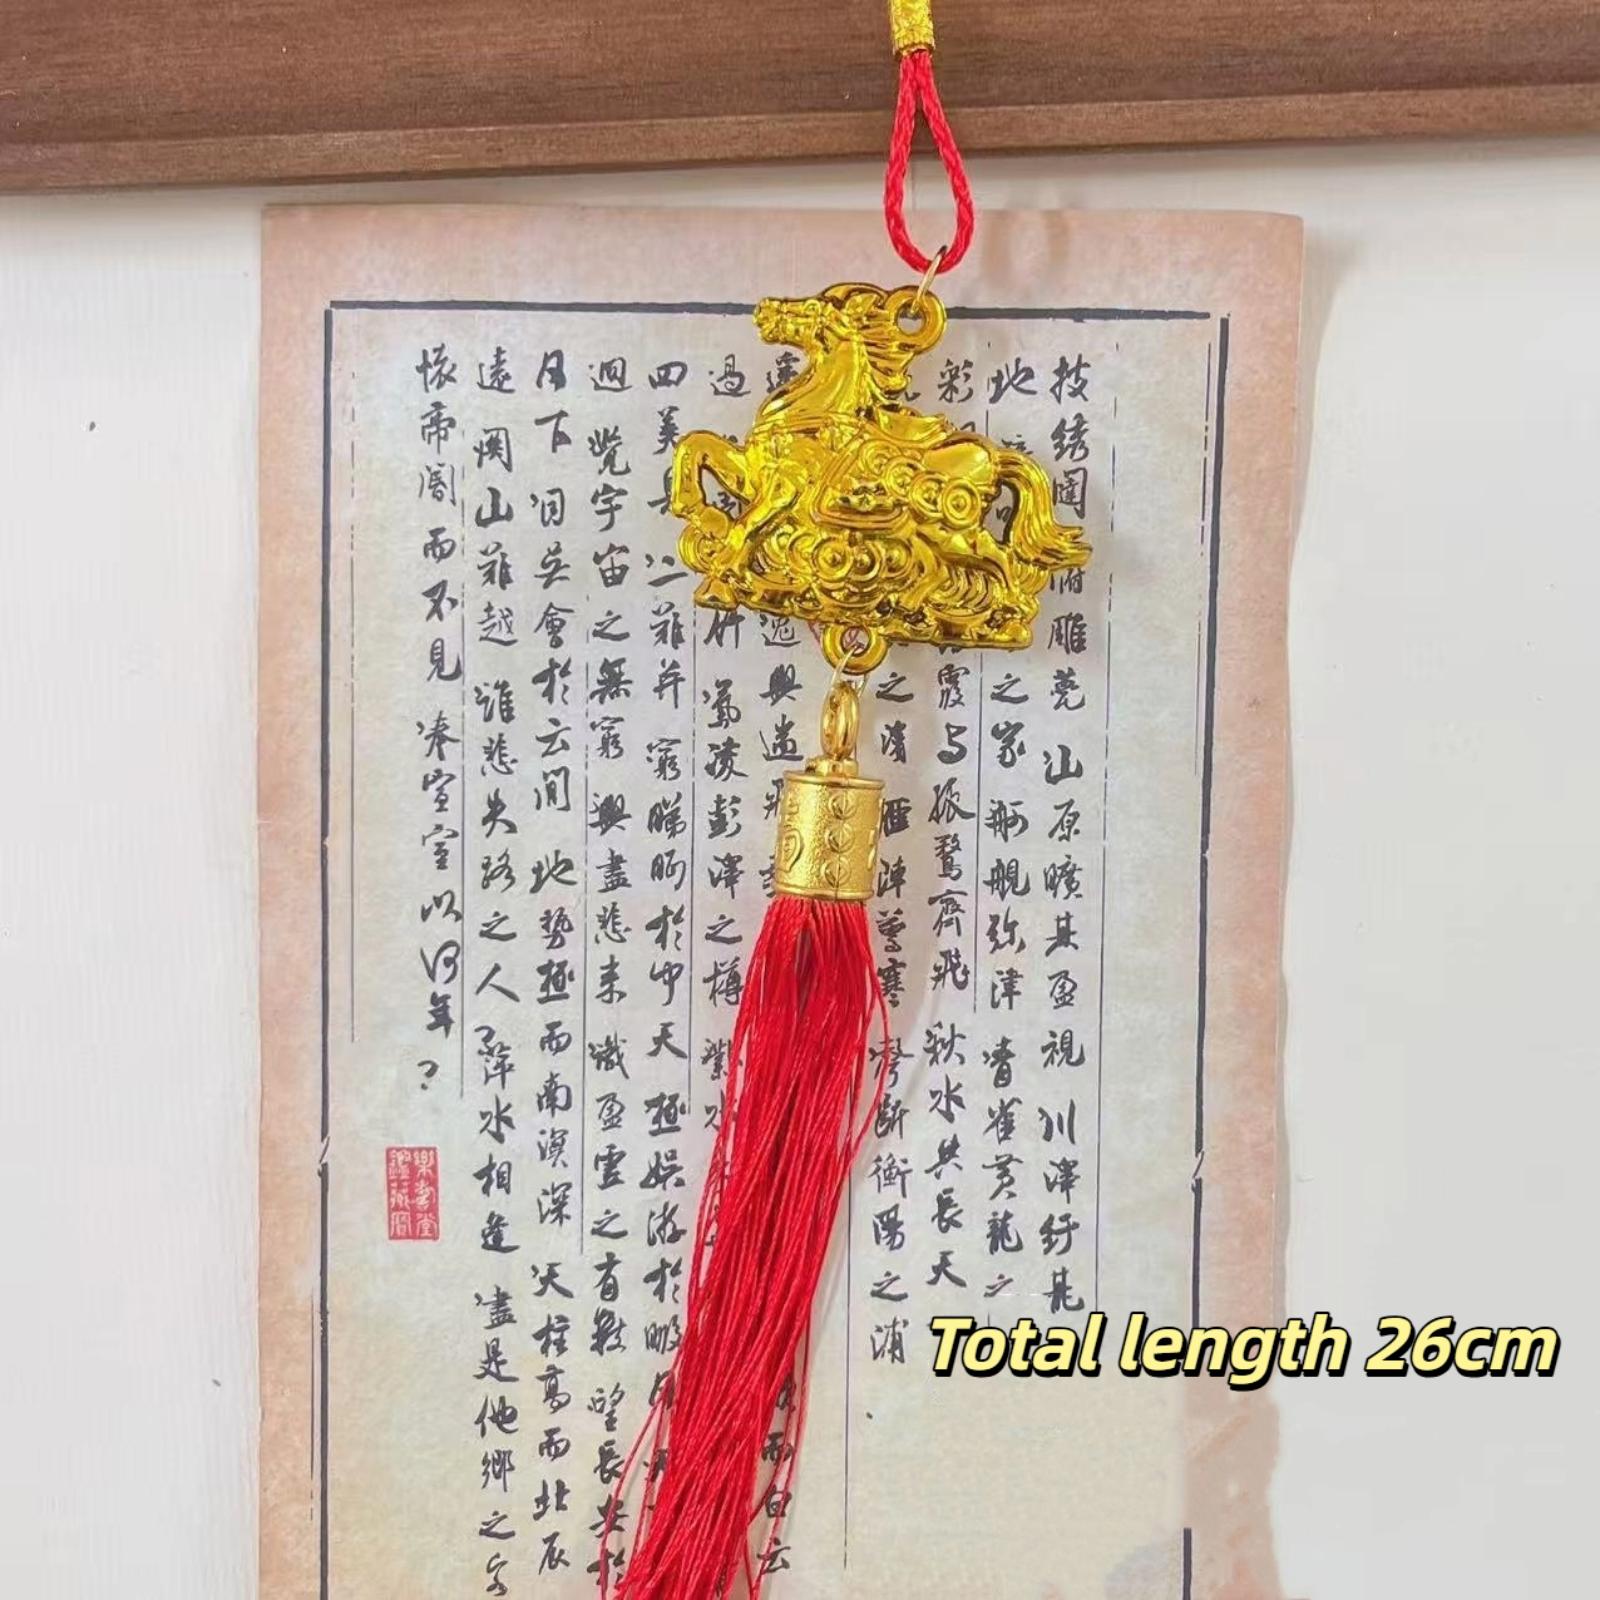 披绣闥 俯雕甍 山原曠其盈視 川澤紆其
地 之家 舸艦弥津 青雀黄龍之
彩 霞与孤鶩齊飛 秋水共長天
之濱 雁陣驚寒 聲斷衡陽之浦
逸興遄飛 而白云
過 竹 氣凌彭澤之樽 鄴水
四美具 二難并 窮睇眄於中天 極娱游於暇
迥 覺宇宙之無窮 興盡悲来 識盈虚之有數 望長安於
日下 目吴會於云間 地勢極而南溟深 天柱高而北辰
遠 關山難越 誰悲失路之人 萍水相逢 盡是他鄉之客
懷帝閽而不見 奉宣室以何年?
Total length 26cm